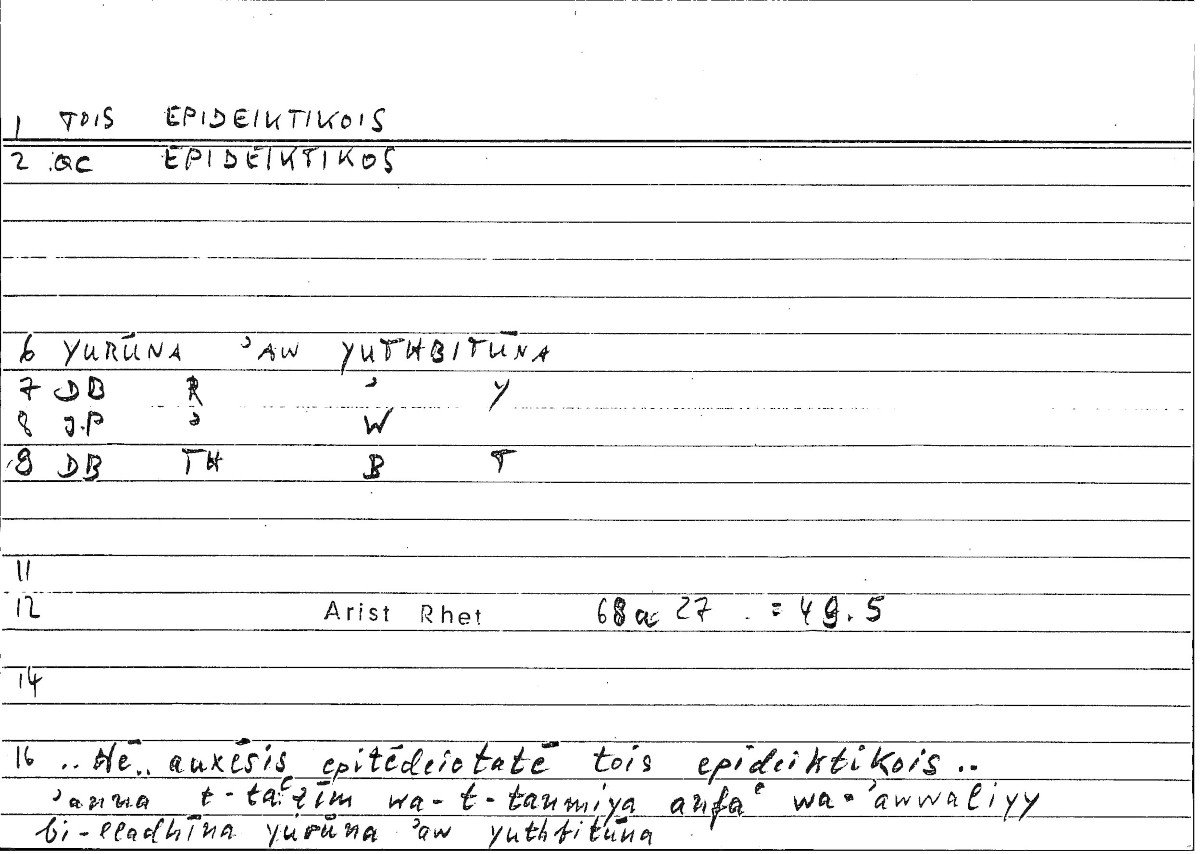 1 TOIS EPIDEIKTIKOIS
2 QC EPIDEIKTIKOS
6 YURŪNA ʾAW YUTHBITŪNA
7 DB R ʾ Y
8 J.P ʾ W
9 DB TH B T
11
12 Arist Rhet 68a 27 . = 49.5
14
16 ..Hē.. auxēsis epitēdeiotatē tois epideiktikois ..
ʾanna t-taʿẓīm wa-t-tanmiya anfaʿ wa-ʾawwaliyy
bi-lladhīna yurūna ʾaw yuthbitūna